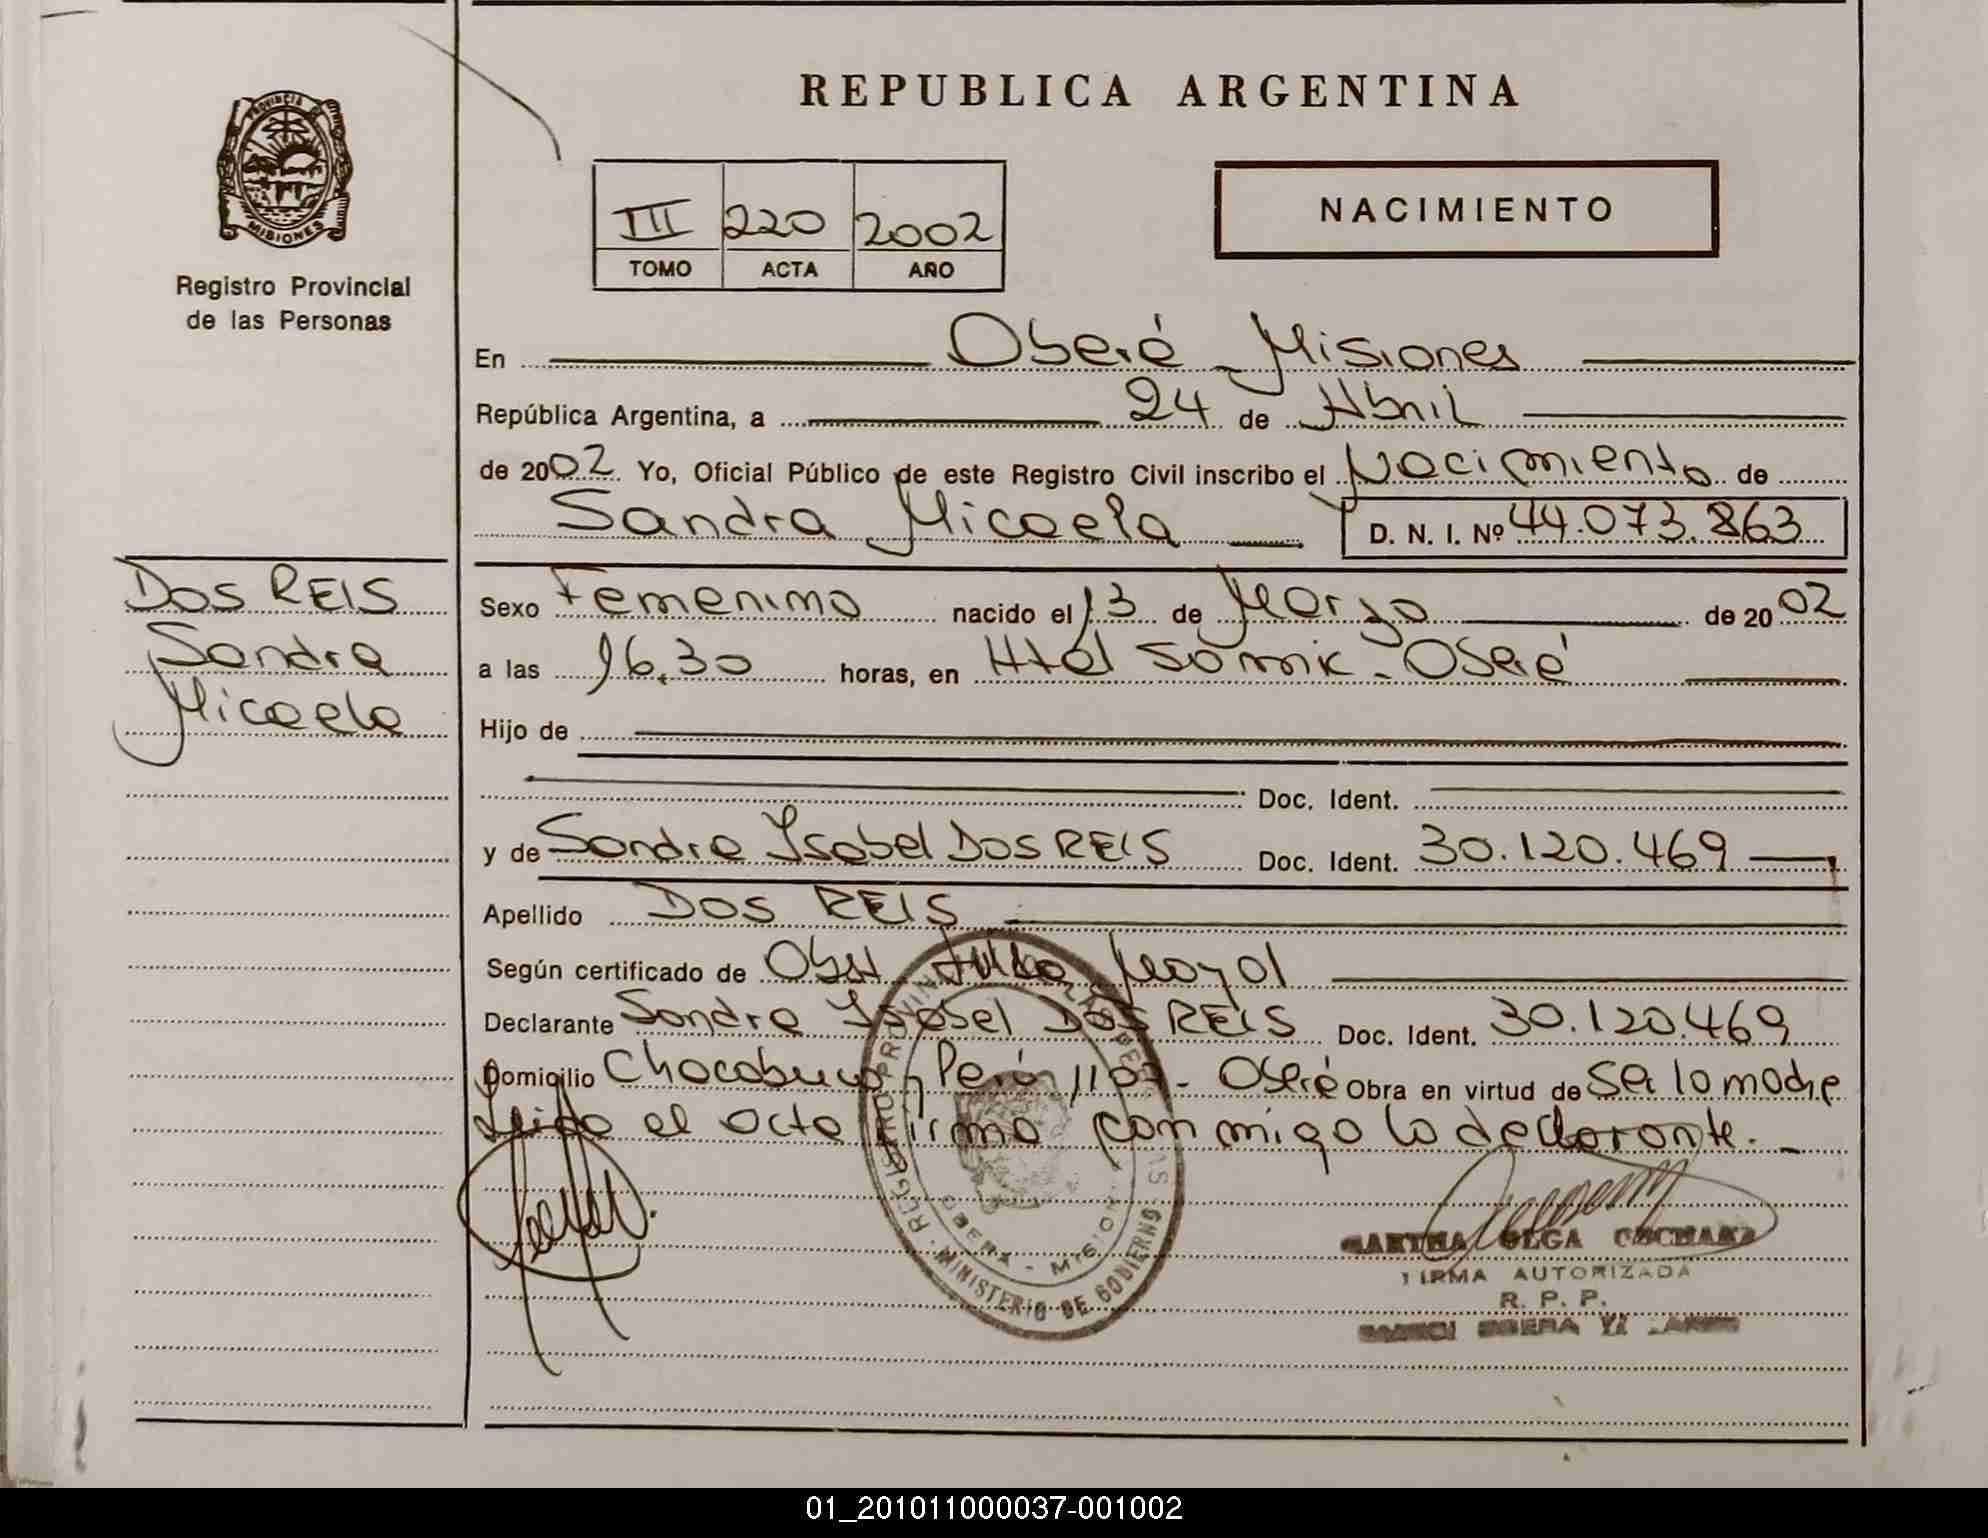 REPUBLICA ARGENTINA
PROVINCIA
MISIONES
Registro Provincial
de las Personas
III 220 2002
TOMO ACTA AÑO
NACIMIENTO
En Oberá - Misiones
República Argentina, a 24 de Abril
de 2002 Yo, Oficial Público de este Registro Civil inscribo el Nacimiento de
Sandra Micaela D. N. I. Nº 44.073.863
DOS REIS
Sandra
Micaela
Sexo Femenino nacido el 13 de Marzo de 2002
a las 16.30 horas, en Htal Samic - Oberá
Hijo de
Doc. Ident.
y de Sandra Isabel DOS REIS Doc. Ident. 30.120.469
Apellido DOS REIS
Según certificado de Obst
Declarante Sandra Isabel DOS REIS Doc. Ident. 30.120.469
Domicilio Chacabuco y Perón 1107 - Oberá Obra en virtud de ser la madre
Leida el acta firma conmigo la declarante. -
MINISTERIO DE GOBIERNO
OBERA - MISIONES
MARTHA OLGA
FIRMA AUTORIZADA
R. P. P.
01_201011000037-001002